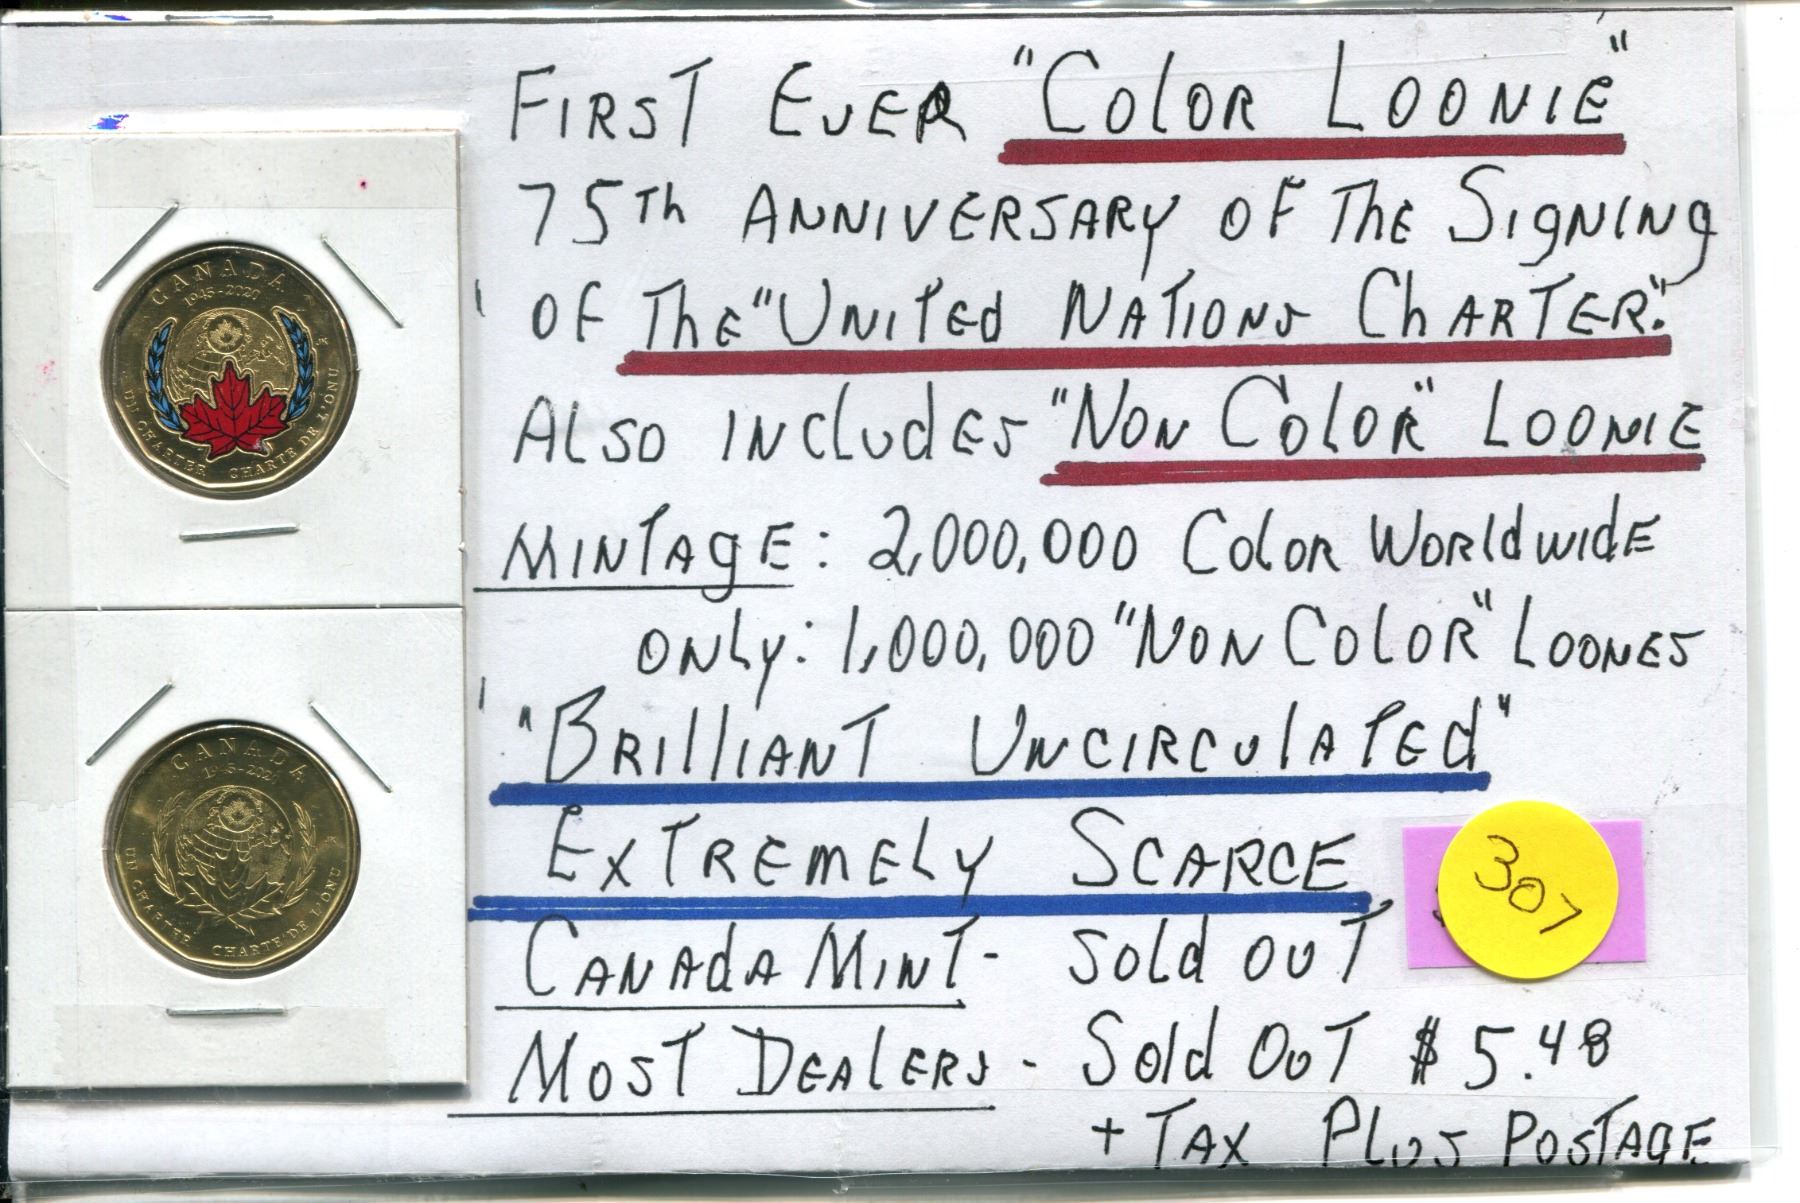 First Ever "Color Loonie"
75th Anniversary of the Signing
of the "United Nations Charter."
Also includes "Non Color" Loonie
Mintage: 2,000,000 Color Worldwide
only: 1,000,000 "Non Color" Loones
"Brilliant Uncirculated"
Extremely Scarce
Canada Mint - Sold out
Most Dealers - Sold Out $5.48
+ Tax Plus Postage
307
CANADA
1945-2020
UN CHARTER CHARTE DE L'ONU
CANADA
1945-2020
UN CHARTER CHARTE DE L'ONU